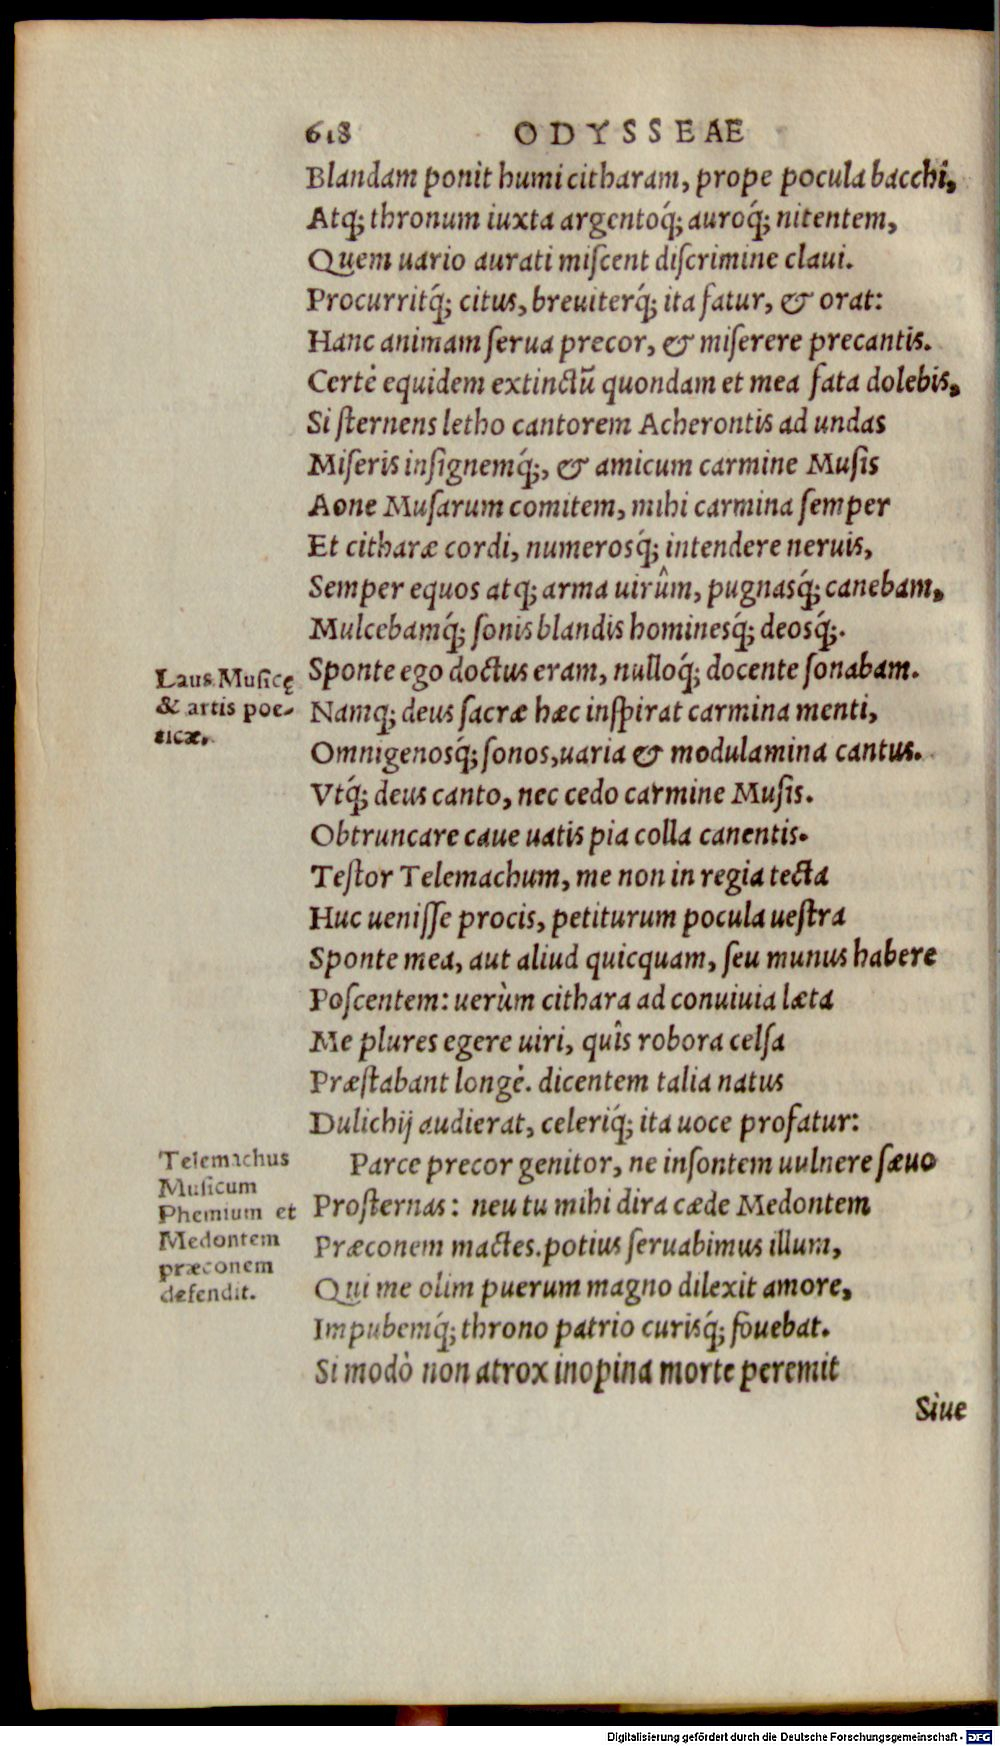 618 ODYSSEAE
Blandam ponit humi citharam, prope pocula bacchi,
Atq; thronum iuxta argentoq́; auroq́; nitentem,
Quem uario aurati miſcent diſcrimine claui.
Procurritq́; citus, breuiterq́; ita fatur, & orat:
Hanc animam ſerua precor, & miſerere precantis.
Certè equidem extinctũ quondam et mea fata dolebis,
Si ſternens letho cantorem Acherontis ad undas
Miſeris inſignemq́;, & amicum carmine Muſis
Aone Muſarum comitem, mihi carmina ſemper
Et citharæ cordi, numerosq́; intendere neruis,
Semper equos atq; arma uirûm, pugnasq́; canebam,
Mulcebamq́; ſonis blandis hominesq́; deosq́;.
Sponte ego doctus eram, nulloq́; docente ſonabam.
Namq; deus ſacræ hæc inſpirat carmina menti,
Omnigenosq́; ſonos, uaria & modulamina cantus.
Vtq́; deus canto, nec cedo carmine Muſis.
Obtruncare caue uatis pia colla canentis.
Teſtor Telemachum, me non in regia tecta
Huc ueniſſe procis, petiturum pocula ueſtra
Sponte mea, aut aliud quicquam, ſeu munus habere
Poſcentem: uerùm cithara ad conuiuia læta
Me plures egere uiri, quîs robora celſa
Præſtabant longè. dicentem talia natus
Dulichij audierat, celeriq́; ita uoce profatur:
Parce precor genitor, ne inſontem uulnere ſæuo
Proſternas: neu tu mihi dira cæde Medontem
Præconem mactes. potius ſeruabimus illum,
Qui me olim puerum magno dilexit amore,
Impubemq́; throno patrio curisq́; fouebat.
Si modò non atrox inopina morte peremit
Siue
Laus Muſicę
& artis poe-
ticæ.
Telemachus
Muſicum
Phemium et
Medontem
præconem
defendit.
Digitalisierung gefördert durch die Deutsche Forschungsgemeinschaft - DFG